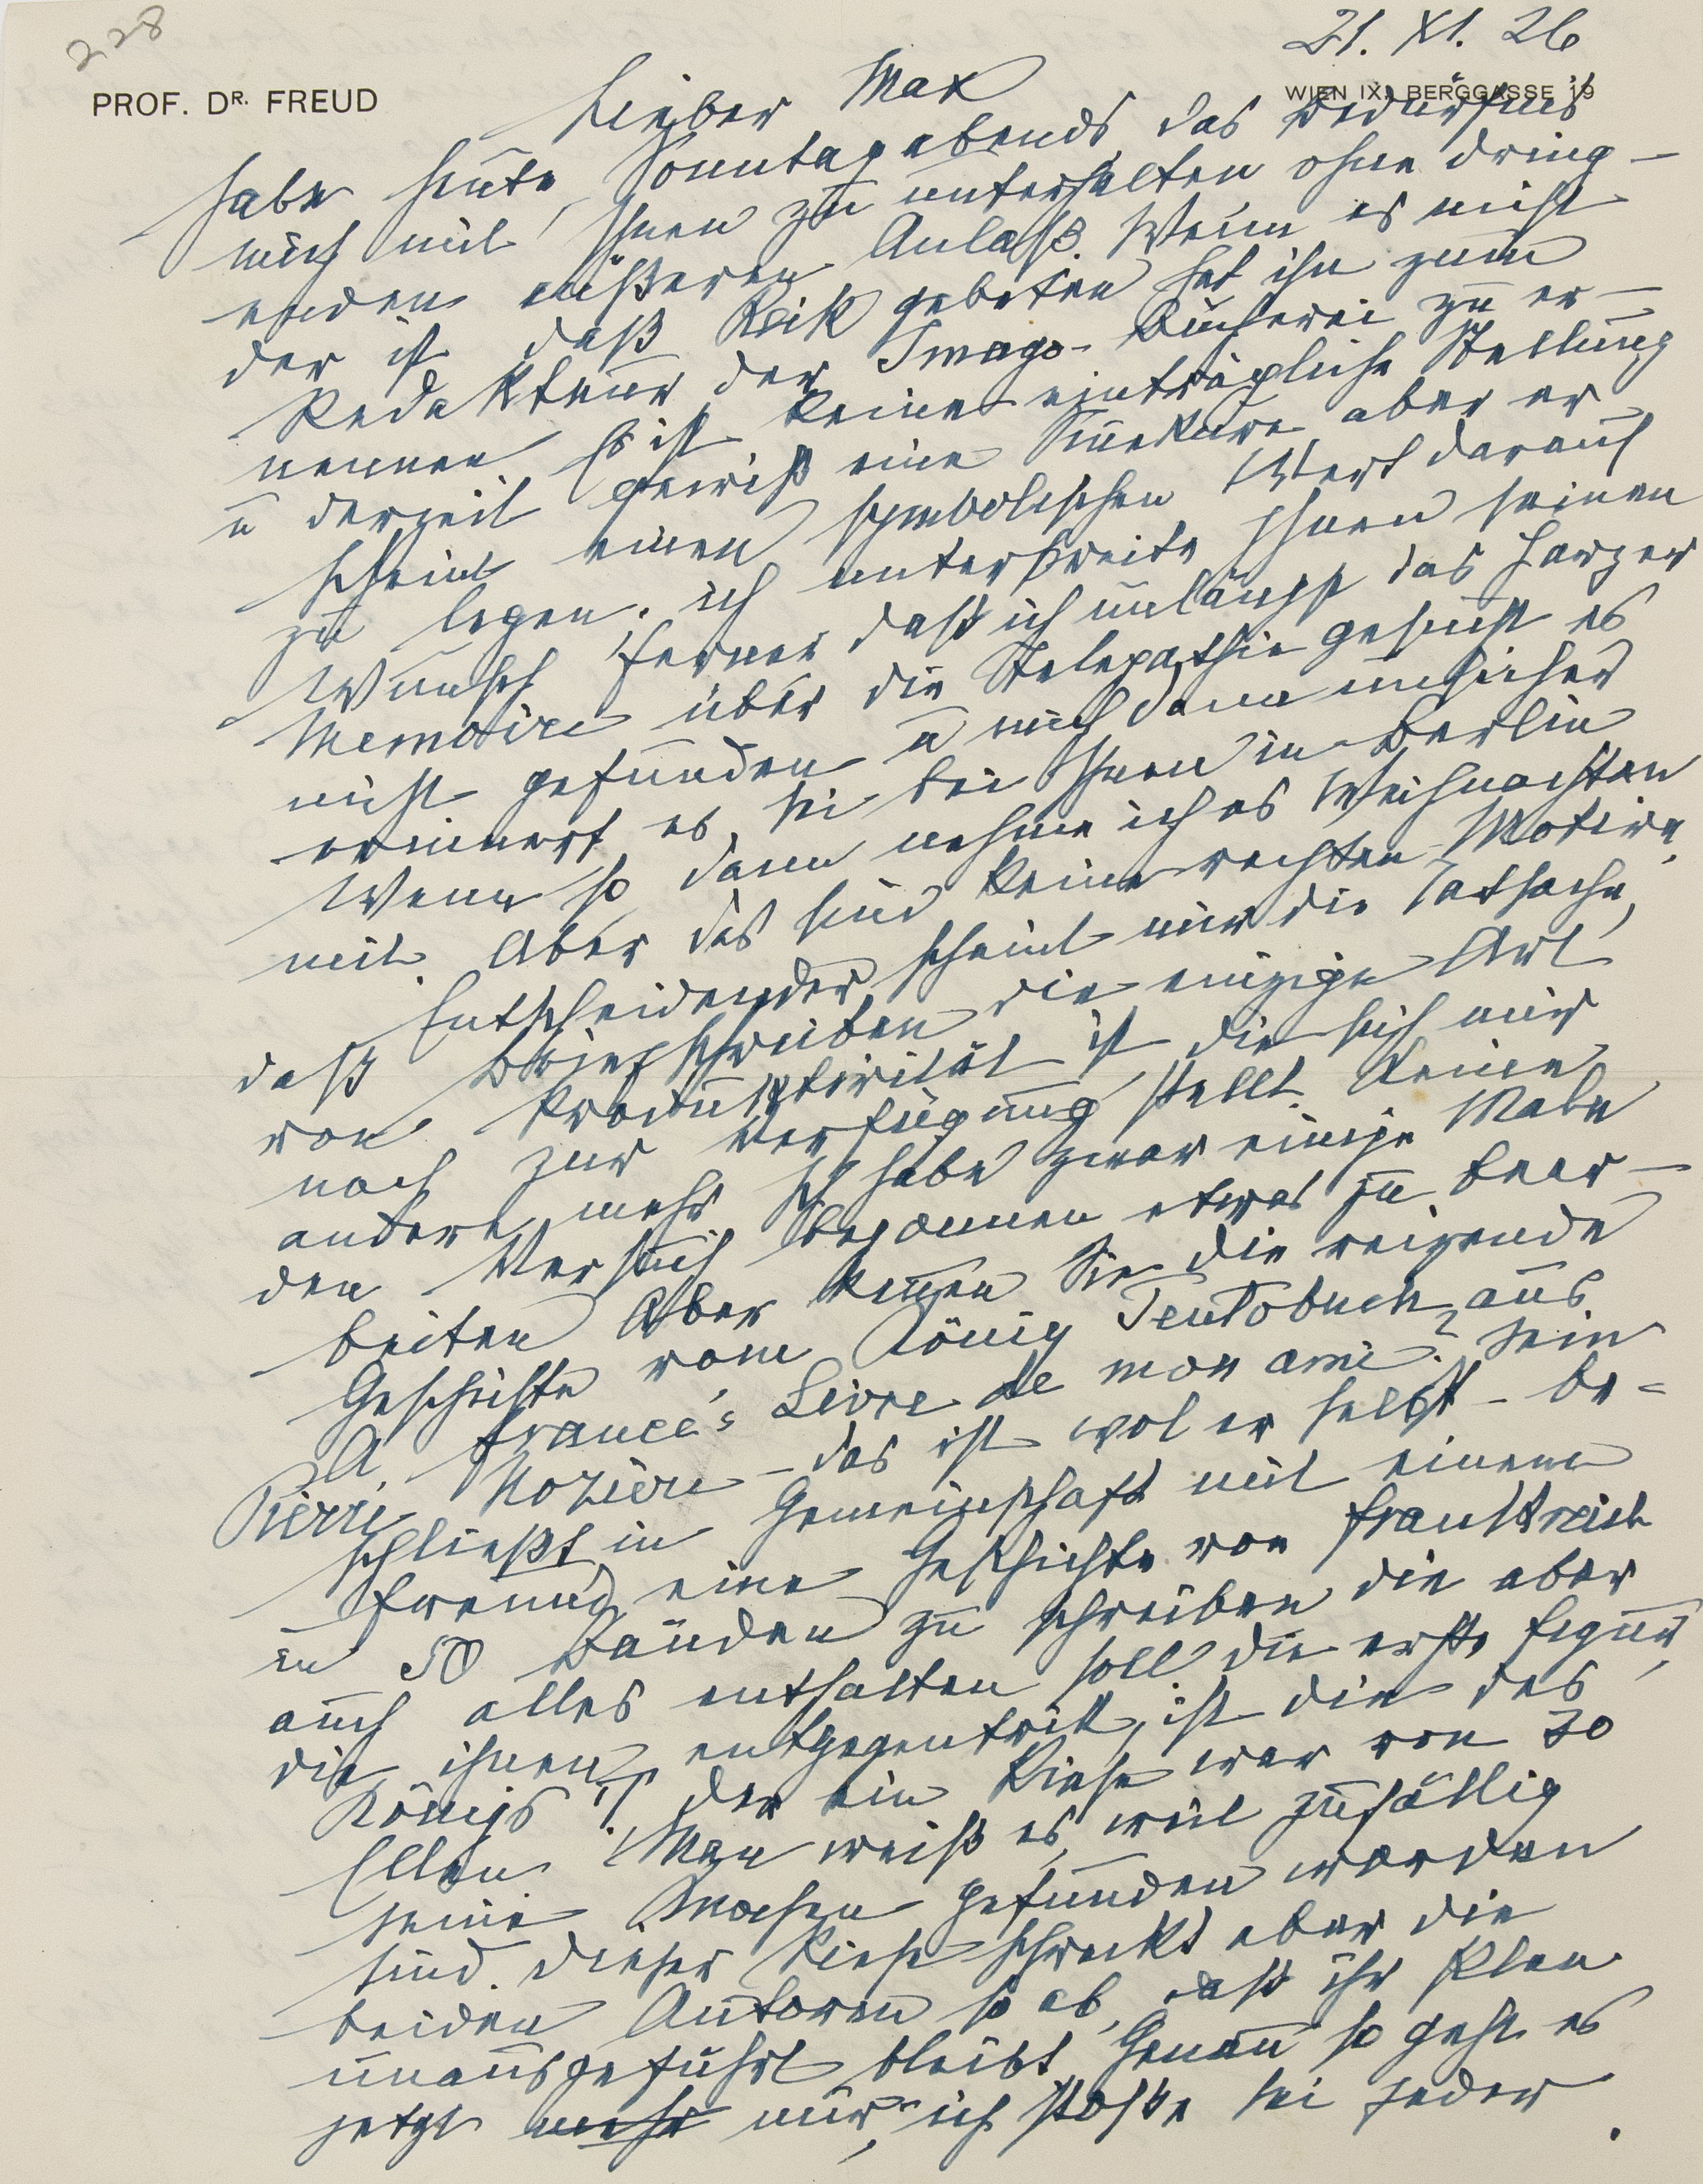 228
21. XI. 26
PROF. DR. FREUD
WIEN IX., BERGGASSE 19
Lieber Max
habe heute, Sonntag abends, das Bedürfnis
mich mit Ihnen zu unterhalten ohne dring-
enden äußeren Anlaß. Wenn es nicht
der ist, daß Reik gebeten hat ihn zum
Redakteur der Imago-Bücherei zu er-
nennen. Es ist keine einträgliche Stellung
u derzeit gewiß eine Sinekure, aber er
scheint einen symbolischen Wert darauf
zu legen. ich unterbreite Ihnen seinen
Wunsch. Ferner daß ich unlängst das Harzer
Memoire über die Telepathie gesucht es
nicht gefunden u mich dann unsicher
erinnert, es sei bei Ihnen in Berlin
Wenn so, dann nehme ich es Weihnachten
mit. Aber das sind keine rechten Motive,
Entscheidender scheint mir die Tatsache,
daß Briefschreiben die einzige Art
von Produktivität ist, die sich mir
noch zur Verfügung stellt. Keine
andere mehr. Ich habe zwar einige Male
den Versuch begonnen etwas zu bear-
beiten Aber kennen Sie die reizende
Geschichte vom König Teutobuch, aus
A. France's Livre de mon ami? Sein
Pierre Nozière – das ist wol er selbst – be=
schließt in Gemeinschaft mit einem
Freund, eine Geschichte von Frankreich
in 50 Bänden zu schreiben die aber
auch alles enthalten soll. die erste Figur,
die ihnen entgegentritt, ist die des
Königs T. der ein Riese war von 30
Ellen. Man weiß es, weil zufällig
seine Knochen gefunden worden
sind. Dieser Riese schreckt aber die
beiden Autoren so ab, daß ihr Plan
unausgeführt bleibt. Genau so geht es
jetzt mir, ich stoße bei jeder